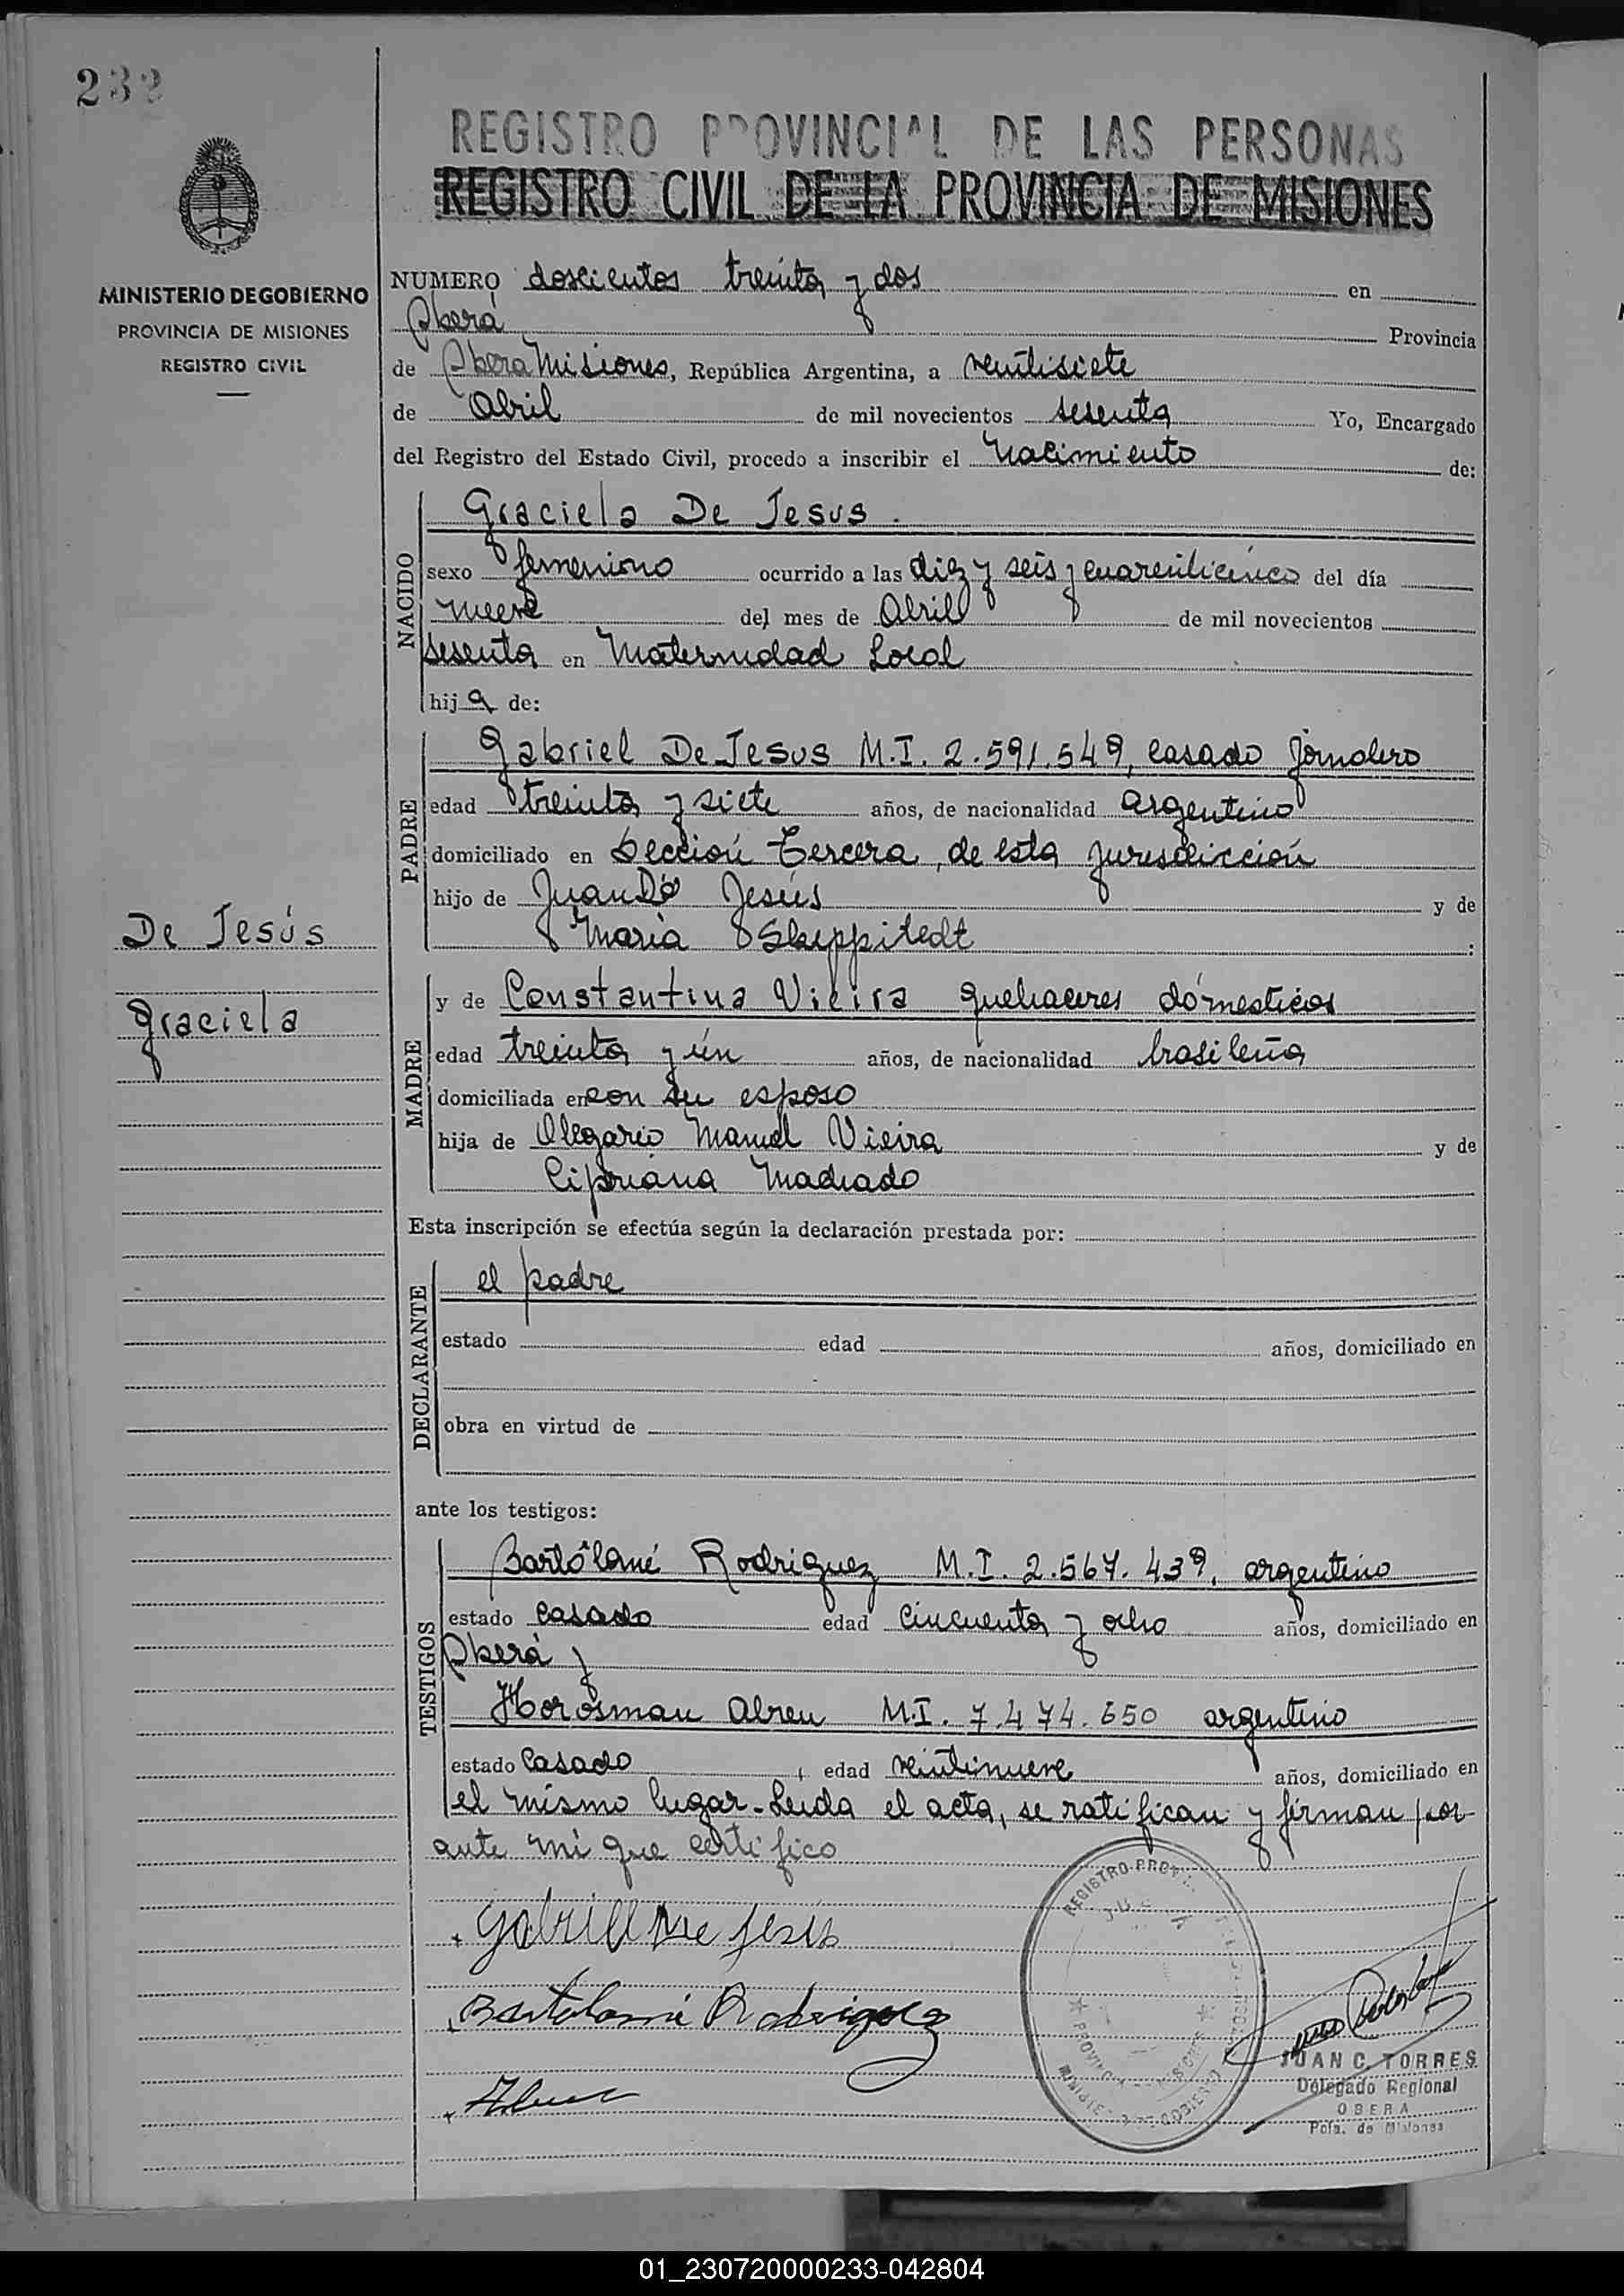 232
REGISTRO PROVINCIAL DE LAS PERSONAS
REGISTRO CIVIL DE LA PROVINCIA DE MISIONES
MINISTERIO DE GOBIERNO
PROVINCIA DE MISIONES
REGISTRO CIVIL
NUMERO doscientos treinta y dos en
Oberá Provincia
de Misiones, República Argentina, a veintisiete
de Abril de mil novecientos sesenta Yo, Encargado
del Registro del Estado Civil, procedo a inscribir el Nacimiento de:
NACIDO
Graciela De Jesus.
sexo femenino ocurrido a las diez y seis y cuarenticinco del día
nueve del mes de Abril de mil novecientos
sesenta en Maternidad Local
hija de:
PADRE
Gabriel De Jesus M.I. 2.591.549, casado jornalero
edad treinta y siete años, de nacionalidad argentino
domiciliado en Sección Tercera, de esta jurisdicción
hijo de Juan De Jesús y de
Maria
De Jesús
Graciela
MADRE
y de Constantina Vieira quehaceres domésticos
edad treinta y un años, de nacionalidad brasileña
domiciliada en con su esposo
hija de Olegario Manuel Vieira y de
Cipriana Machado
Esta inscripción se efectúa según la declaración prestada por:
DECLARANTE
el padre
estado edad años, domiciliado en
obra en virtud de
ante los testigos:
TESTIGOS
Bartolomé Rodriguez M.I. 2.567.439, argentino
estado casado edad cincuenta y ocho años, domiciliado en
Oberá y
Horosman Abreu M.I. 7.474.650 argentino
estado casado, edad veintinueve años, domiciliado en
el mismo lugar. Leida el acta, se ratifican y firman por
ante mi que certifico
Gabriel De Jesús
Bartolomé Rodriguez
JUAN C. TORRES
Delegado Regional
OBERA
Pcia. de Misiones
01_230720000233-042804